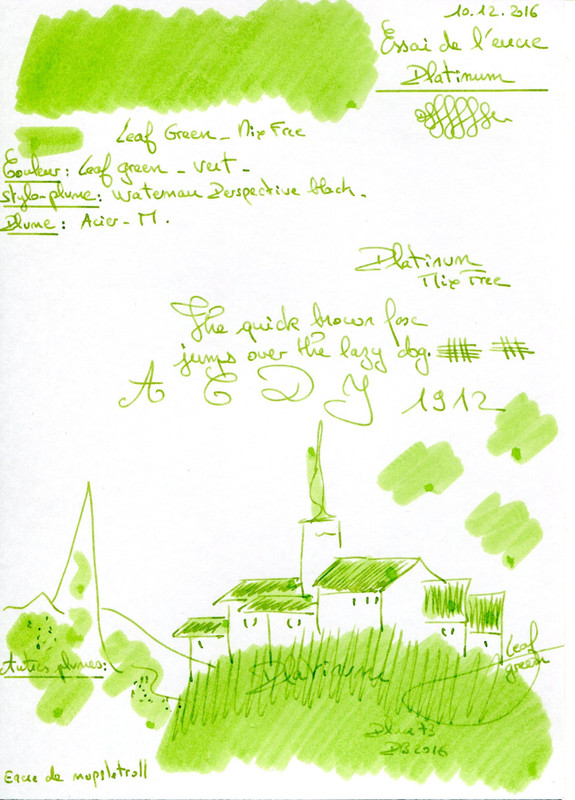 10.12.2016
Essai de l'encre
Platinum
Leaf Green - Mix Free
Couleur: Leaf green - vert -
Stylo-plume: Waterman Perspective black -
Plume: Acier - M.
Platinum
Mix Free
The quick brown fox
jumps over the lazy dog.
A C D Y 1912
Autres plumes:
Platinum
Leaf
green
DB 2016
Encre de mopsletroll